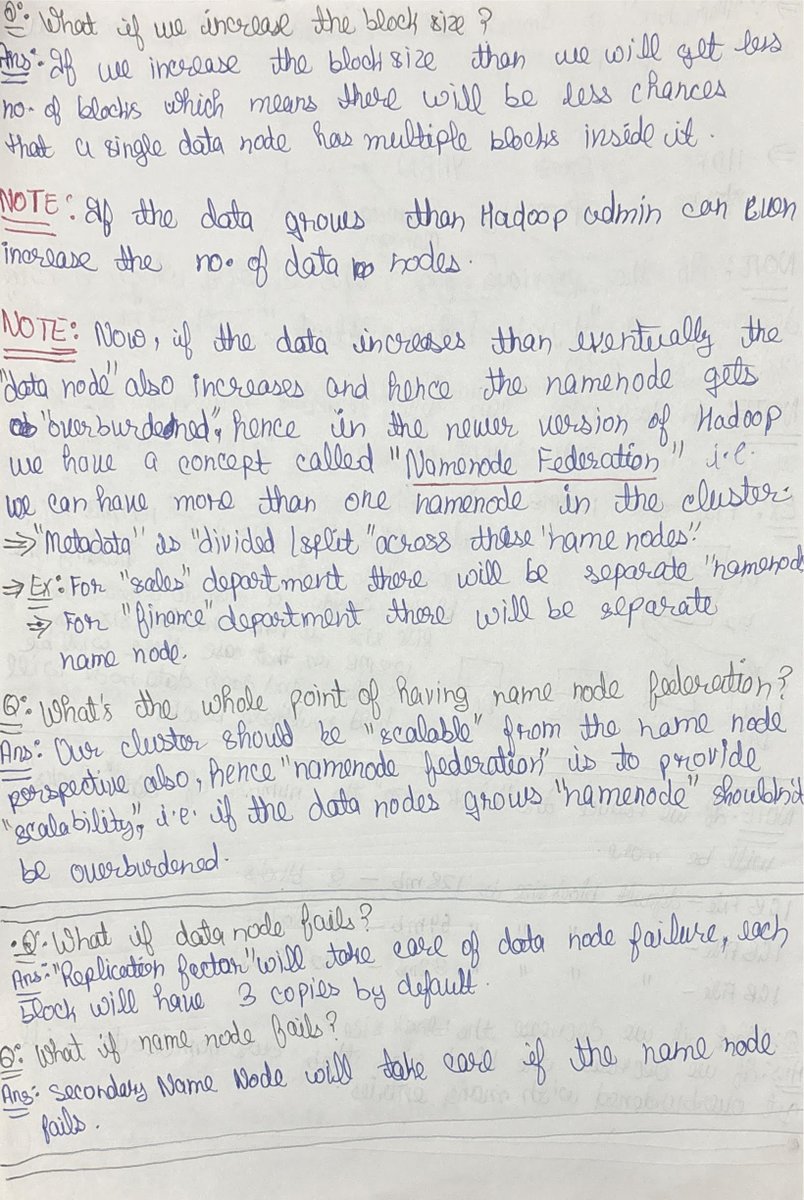 Q: What if we increase the block size?
Ans: If we increase the block size than we will get less
no. of blocks which means there will be less chances
that a single data node has multiple blocks inside it.
NOTE: If the data grows than Hadoop admin can even
increase the no. of data nodes.
NOTE: Now, if the data increases than eventually the
"data node" also increases and hence the namenode gets
"overburdened", hence in the newer version of Hadoop
we have a concept called "Namenode Federation" i.e.
we can have more than one namenode in the cluster.
⇒ "Metadata" is "divided / split" across these "name nodes".
⇒ Ex: For "sales" department there will be separate "namenod
⇒ For "finance" department there will be separate
name node.
Q: What's the whole point of having name node federation?
Ans: Our cluster should be "scalable" from the name node
perspective also, hence "namenode federation" is to provide
"scalability", i.e. if the data nodes grows "namenode" shouldn't
be overburdened.
Q. What if data node fails?
Ans: "Replication factor" will take care of data node failure, each
block will have 3 copies by default.
Q: What if name node fails?
Ans: Secondary Name Node will take care if the name node
fails.